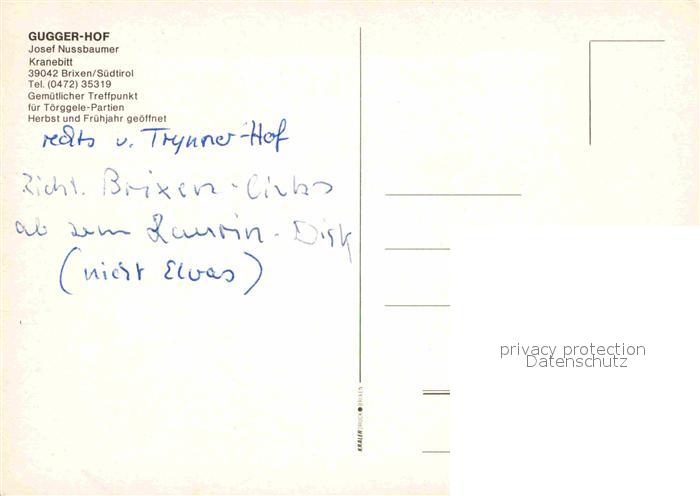 GUGGER-HOF
Josef Nussbaumer
Kranebitt
39042 Brixen/Südtirol
Tel. (0472) 35319
Gemütlicher Treffpunkt
für Törggele-Partien
Herbst und Frühjahr geöffnet
rechts v. Hof
Richt. Brixen - links
ab zum Laurin - Disk
(nicht Elvas)
KRALERDRUCK BRIXEN
privacy protection
Datenschutz